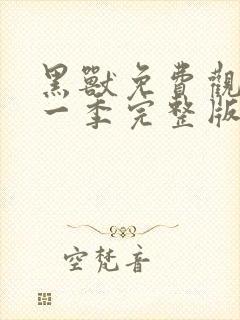 黑獸免費觀
一季完整版
空梵音